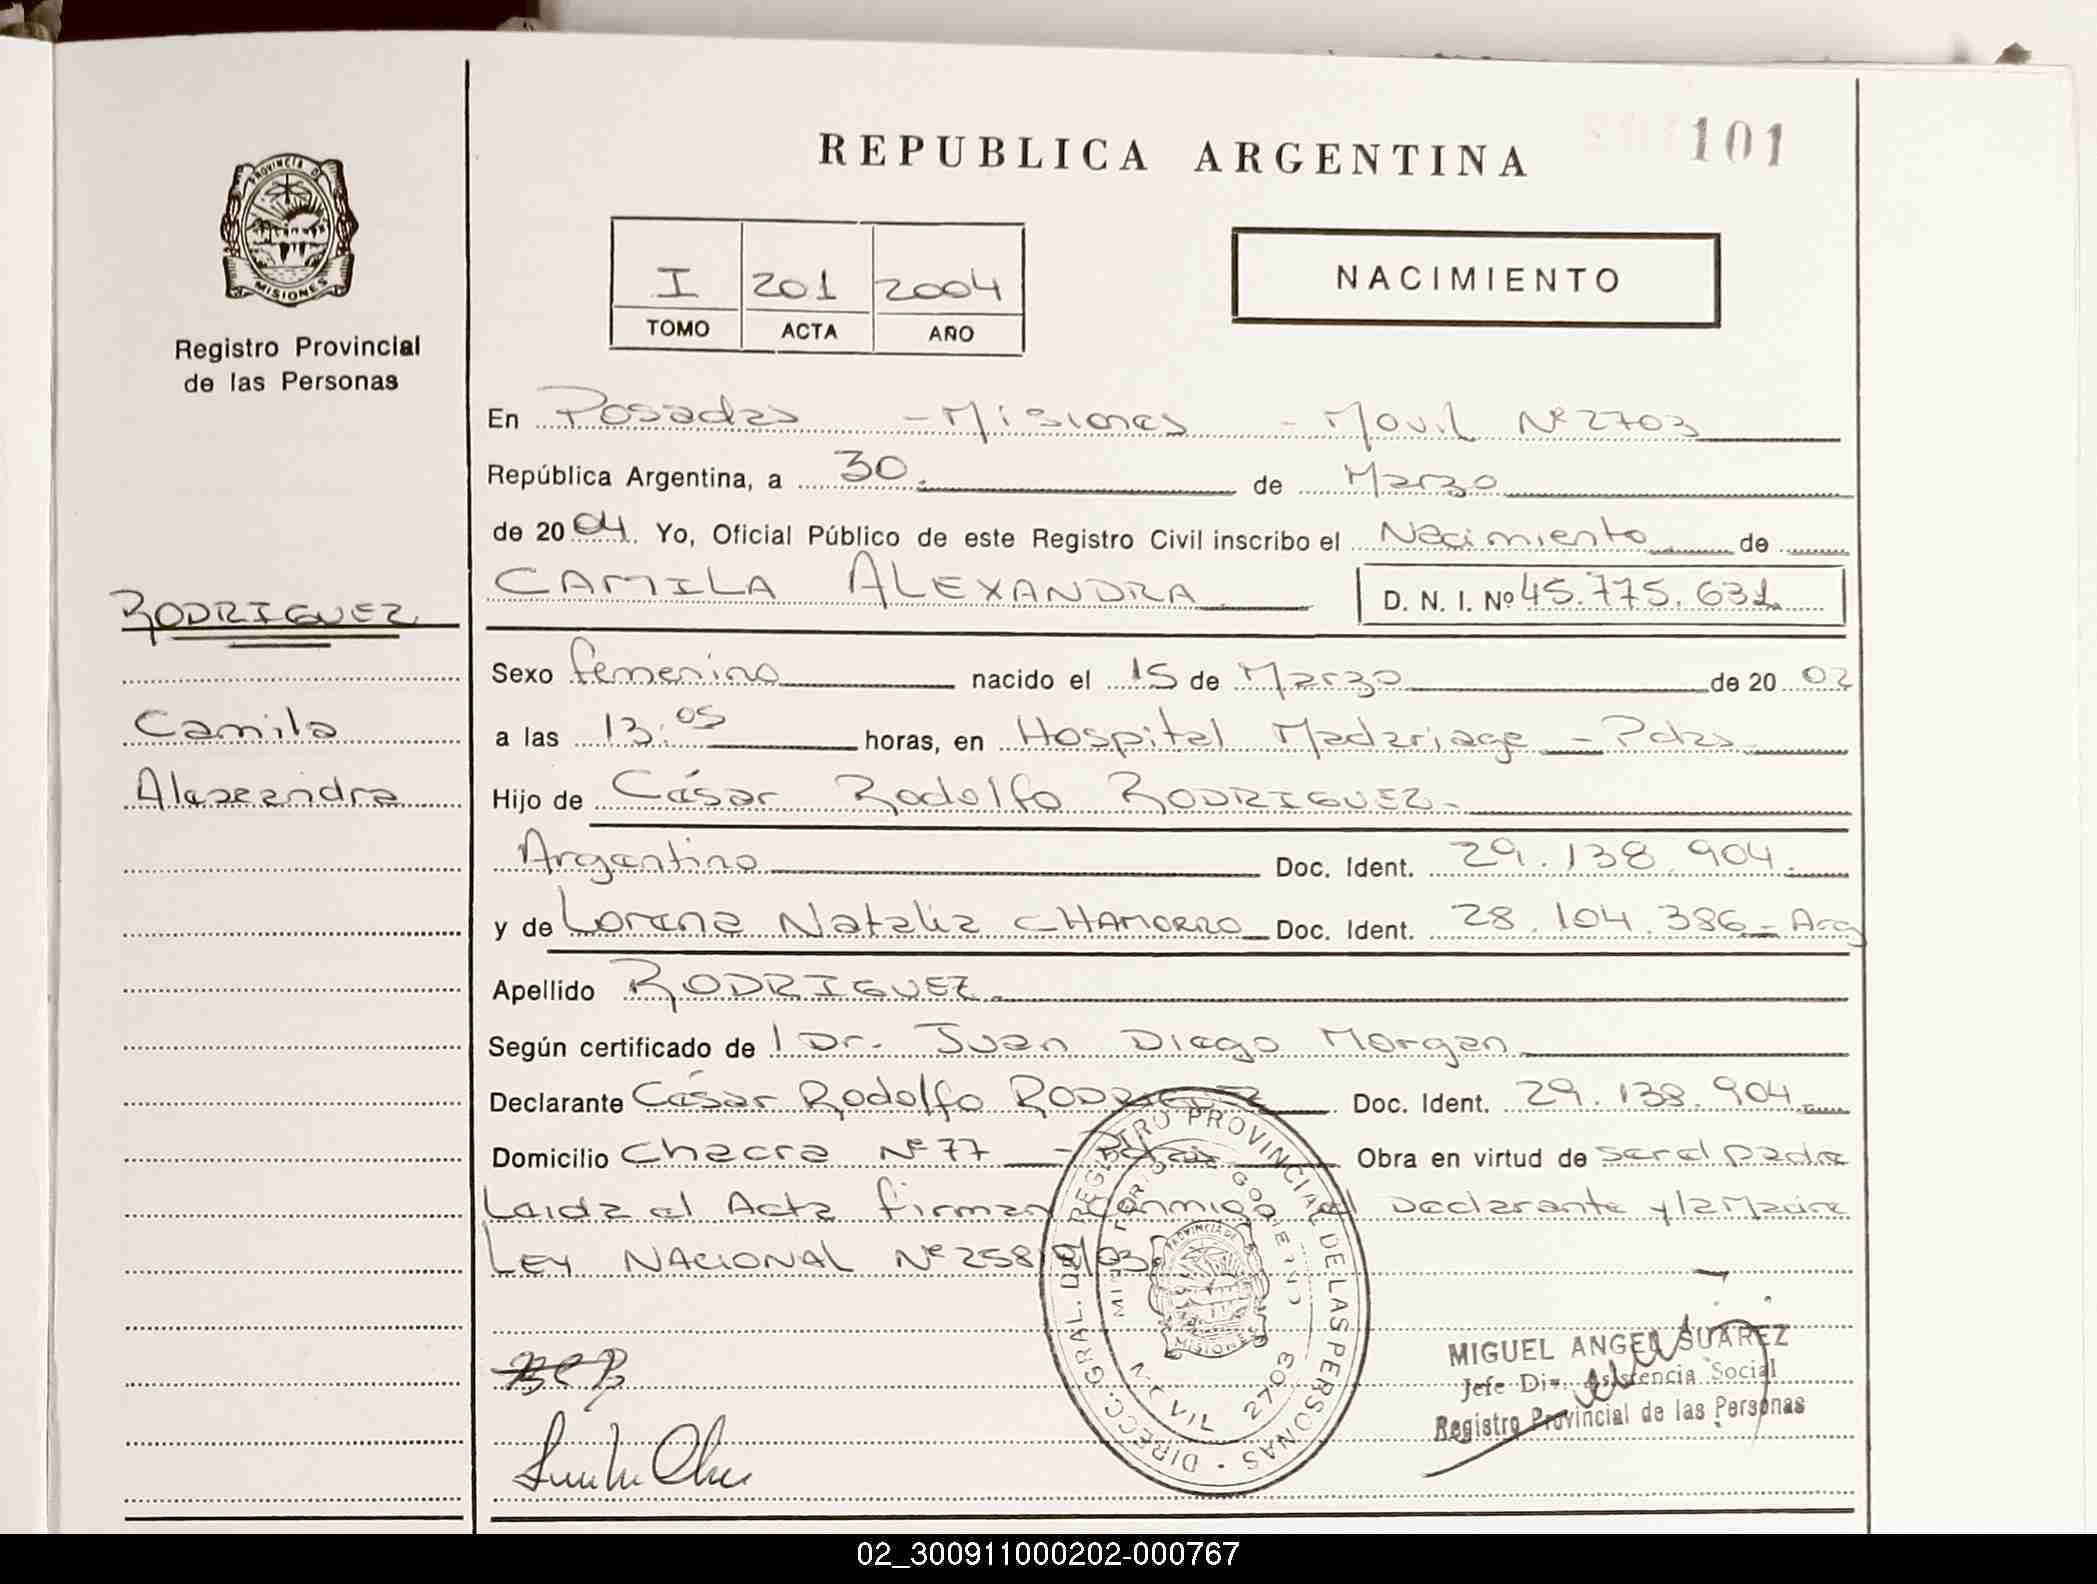 REPUBLICA ARGENTINA
101
PROVINCIA DE
MISIONES
Registro Provincial
de las Personas
I 201 2004
TOMO ACTA AÑO
NACIMIENTO
En Posadas - Misiones - Movil Nº 2703
República Argentina, a 30 de Marzo
de 2004. Yo, Oficial Público de este Registro Civil inscribo el Nacimiento de
CAMILA ALEXANDRA D. N. I. Nº 45.775.631
RODRIGUEZ
Camila
Alexandra
Sexo femenino nacido el 15 de Marzo de 20 02
a las 13:05 horas, en Hospital Madariaga - Pdas
Hijo de César Rodolfo RODRIGUEZ-
Argentino Doc. Ident. 29.138.904.
y de Lorena Natalia CHAMORRO Doc. Ident. 28.104.386 - Arg
Apellido RODRIGUEZ
Según certificado de Dr. Juan Diego Morgan
Declarante César Rodolfo RODRIGUEZ Doc. Ident. 29.138.904
Domicilio Chacra Nº 77 - Pdas Obra en virtud de ser el padre
Leida el Acta firman conmigo el Declarante y la Madre
LEY NACIONAL Nº 25819/03.
DIRECC. GRAL. DEL REGISTRO PROVINCIAL DE LAS PERSONAS
GOBIERNO
PROVINCIA DE
MISIONES
2703
MIGUEL ANGEL SUAREZ
Jefe Div. Asistencia Social
Registro Provincial de las Personas
02_300911000202-000767